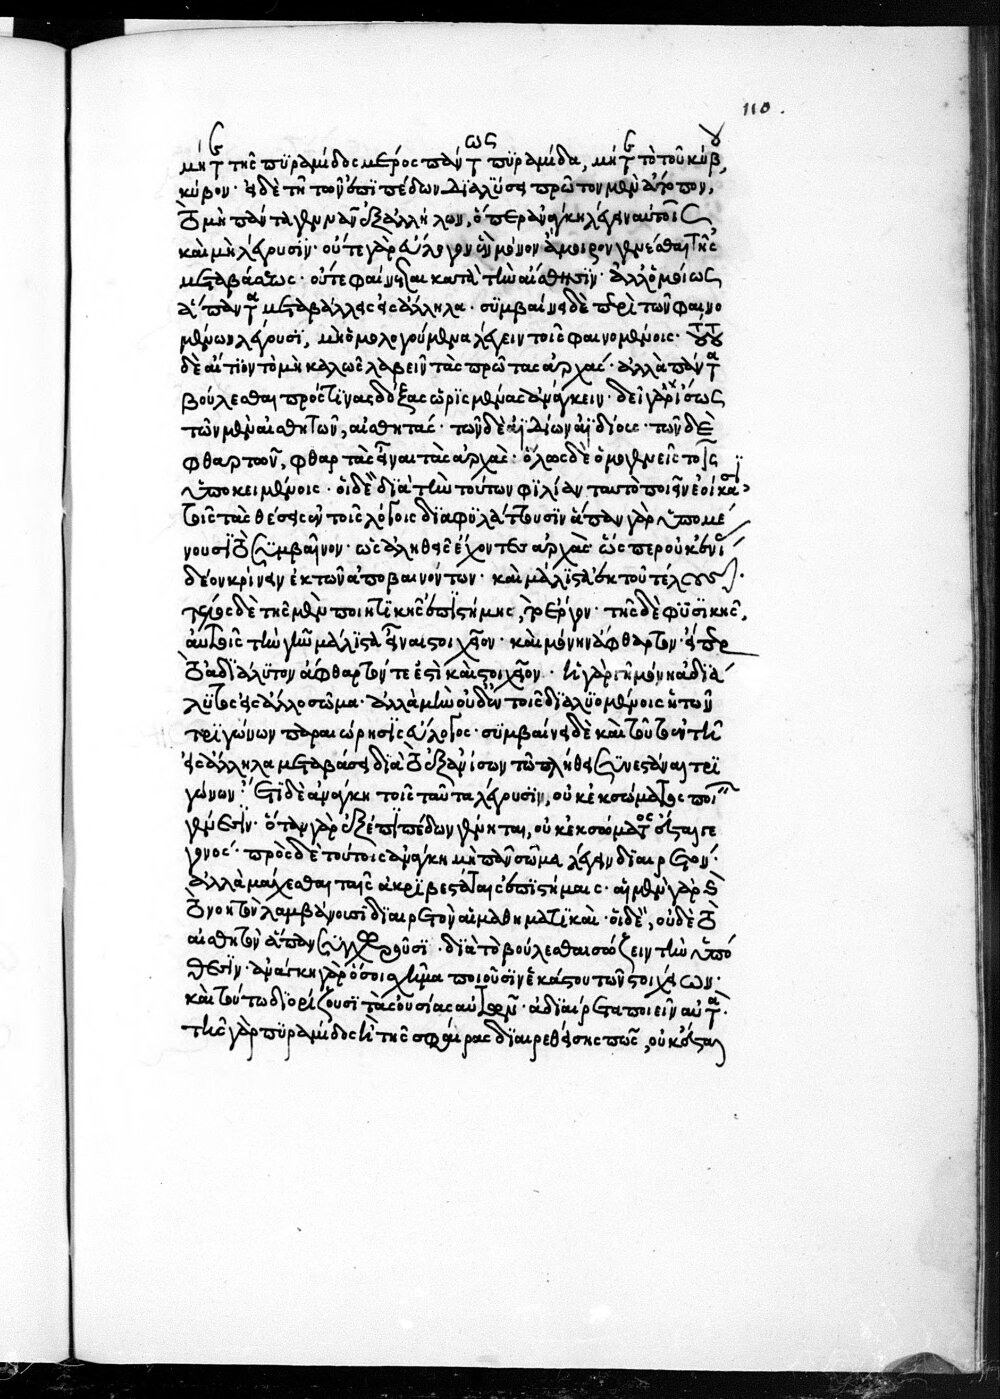 110.
μήτε τῆς πϋραμίδος μέρος πάντως πϋραμίδα, μήτε τὸ τοῦ κύβου,
κύβον· ἐς δὲ τῆ τῶν ἐπϊπέδων δϊαλύσει πρῶτον μὲν ἄτοπον,
τὸ μὴ πάντα γεννᾶν ἐξ ἀλλήλων, ὅπερ ἀνάγκη λέγειν αὐτοῖς
καὶ μὴ λέγουσϊν· οὔτε γὰρ εὔλογον ἓν μόνον ἄμοιρον γενέσθαι τῆς
μεταβάσεως· οὔτε φαίνεται κατὰ τὴν αἴσθησϊν· ἀλλ' ὁμοίως
ἅπαντα μεταβάλλει ἐς ἄλληλα· σϋμβαίνει δὲ περὶ τῶν φαινο
μένων λέγουσϊ, μὴ ὁμολογούμενα λέγειν τοῖς φαινομένοις· τούτου
δὲ αἴτϊον τὸ μὴ καλῶς λαβεῖν τὰς πρώτας ἀρχάς· ἀλλὰ πάντα
βούλεσθαι πρός τϊνας δόξας ὡρϊσμένας ἀνάγκειν· δεῖ γὰρ ἴσως
τῶν μὲν αἰσθητῶν, αἰσθητάς· τῶν δὲ ἀϊδίων ἀϊδίους· τῶν δὲ
φθαρτῶν, φθαρτὰς εἶναι τὰς ἀρχάς· ὅλως δὲ ὁμογενεῖς τοῖς
ὑποκειμένοις· οἱ δὲ δϊὰ τὴν τούτων φϊλίαν ταυτὸ ποιεῖν ἐοίκασϊ
τοῖς τὰς θέσεις ἐν τοῖς λόγοις δϊαφϋλάττουσϊν ἅπαν γὰρ ὑπομέ
νουσϊ τὸ συμβαῖνον· ὡς ἀληθεῖς ἔχοντες ἀρχάς· ὥσπερ οὐκ ἔνϊα
δέον κρίνειν ἐκ τῶν ἀποβαινόντων· καὶ μάλϊστα ἐκ τοῦ τέλους·
τέλος δὲ τῆς μὲν ποιητϊκῆς ἐπϊστήμης, τὸ ἔργον· τῆς δὲ φϋσϊκῆς,
αὐτοῖς τὴν γῆν μάλϊστα εἶναι στοιχεῖον· καὶ μόνην ἄφθαρτον· εἴπερ
τὸ ἀδϊάλϋτον ἄφθαρτόν τε ἐστὶ καὶ στοιχεῖον· ἡ γὰρ γῆ μόνη ἀδϊά
λϋτος ἐς ἄλλο σῶμα· ἀλλὰ μὴν οὐδ' ἐν τοῖς δϊαλϋομένοις ἡ τῶν
τρϊγώνων παραιώρησϊς εὔλογος· σϋμβαίνει δὲ καὶ τοῦτο ἐν τῆ
ἐς ἄλληλα μεταβάσει δϊὰ τὸ ἐξ ἀνίσων τῶ πλήθει συνεστάναι τρϊ
γώνων· ἔτϊ δὲ ἀνάγκη τοῖς ταῦτα λέγουσϊν, οὐκ ἐκ σώματος ποιεῖν
γένεσϊν· ὅταν γὰρ ἐξ ἐπϊπέδων γένηται, οὐκ ἐκ σώματος ἔσται γε
γονός· πρὸς δὲ τούτοις ἀνάγκη μὴ πᾶν σῶμα λέγειν δϊαιρετόν·
ἀλλὰ μάχεσθαι ταῖς ἀκρϊβεστάταις ἐπϊστήμαις· αἱ μὲν γὰρ καὶ
τὸ νοητὸν λαμβάνουσϊ δϊαιρετὸν αἱ μαθηματϊκαί· οἱ δὲ, οὐδὲ τὸ
αἰσθητὸν ἅπαν συγχωροῦσϊ· δϊὰ τὸ βούλεσθαι σώζειν τὴν ὑπό
θεσϊν· ἀνάγκη γὰρ ὅσοι σχῆμα ποιοῦσϊν ἑκάστου τῶν στοιχείων·
καὶ τούτω δϊορίζουσϊ τὰς οὐσίας αὐτῶν· ἀδϊαίρετα ποιεῖν αὐτά·
τῆς γὰρ πϋραμίδος ἢ τῆς σφαίρας δϊαιρεθείσης πως, οὐκ ἔσται